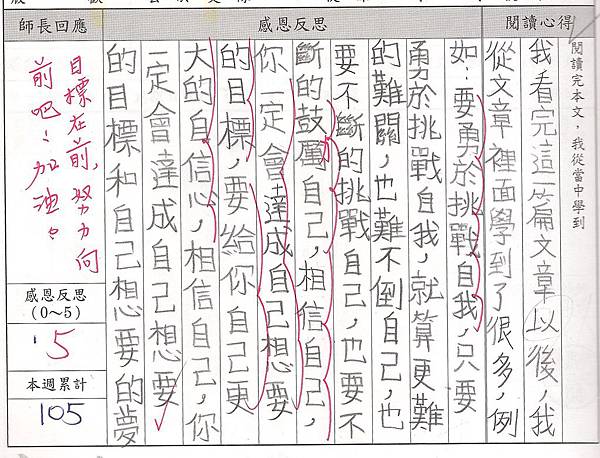 閱讀心得
感恩反思
師長回應
閱讀完本文,我從當中學到
我看完這一篇文章以後,我
從文章裡面學到了很多,例
如:要勇於挑戰自我,只要
勇於挑戰自我,就算更難
的難關,也難不倒自己,也
要不斷的挑戰自己,也要不
斷的鼓勵自己,相信自己,
你一定會達成自己想要
的目標,要給你自己更
大的自信心,相信自己,你
一定會達成自己想要
的目標和自己想要的夢
目標在前,努力向
前吧!加油。
感恩反思
(0~5)
5
本週累計
105